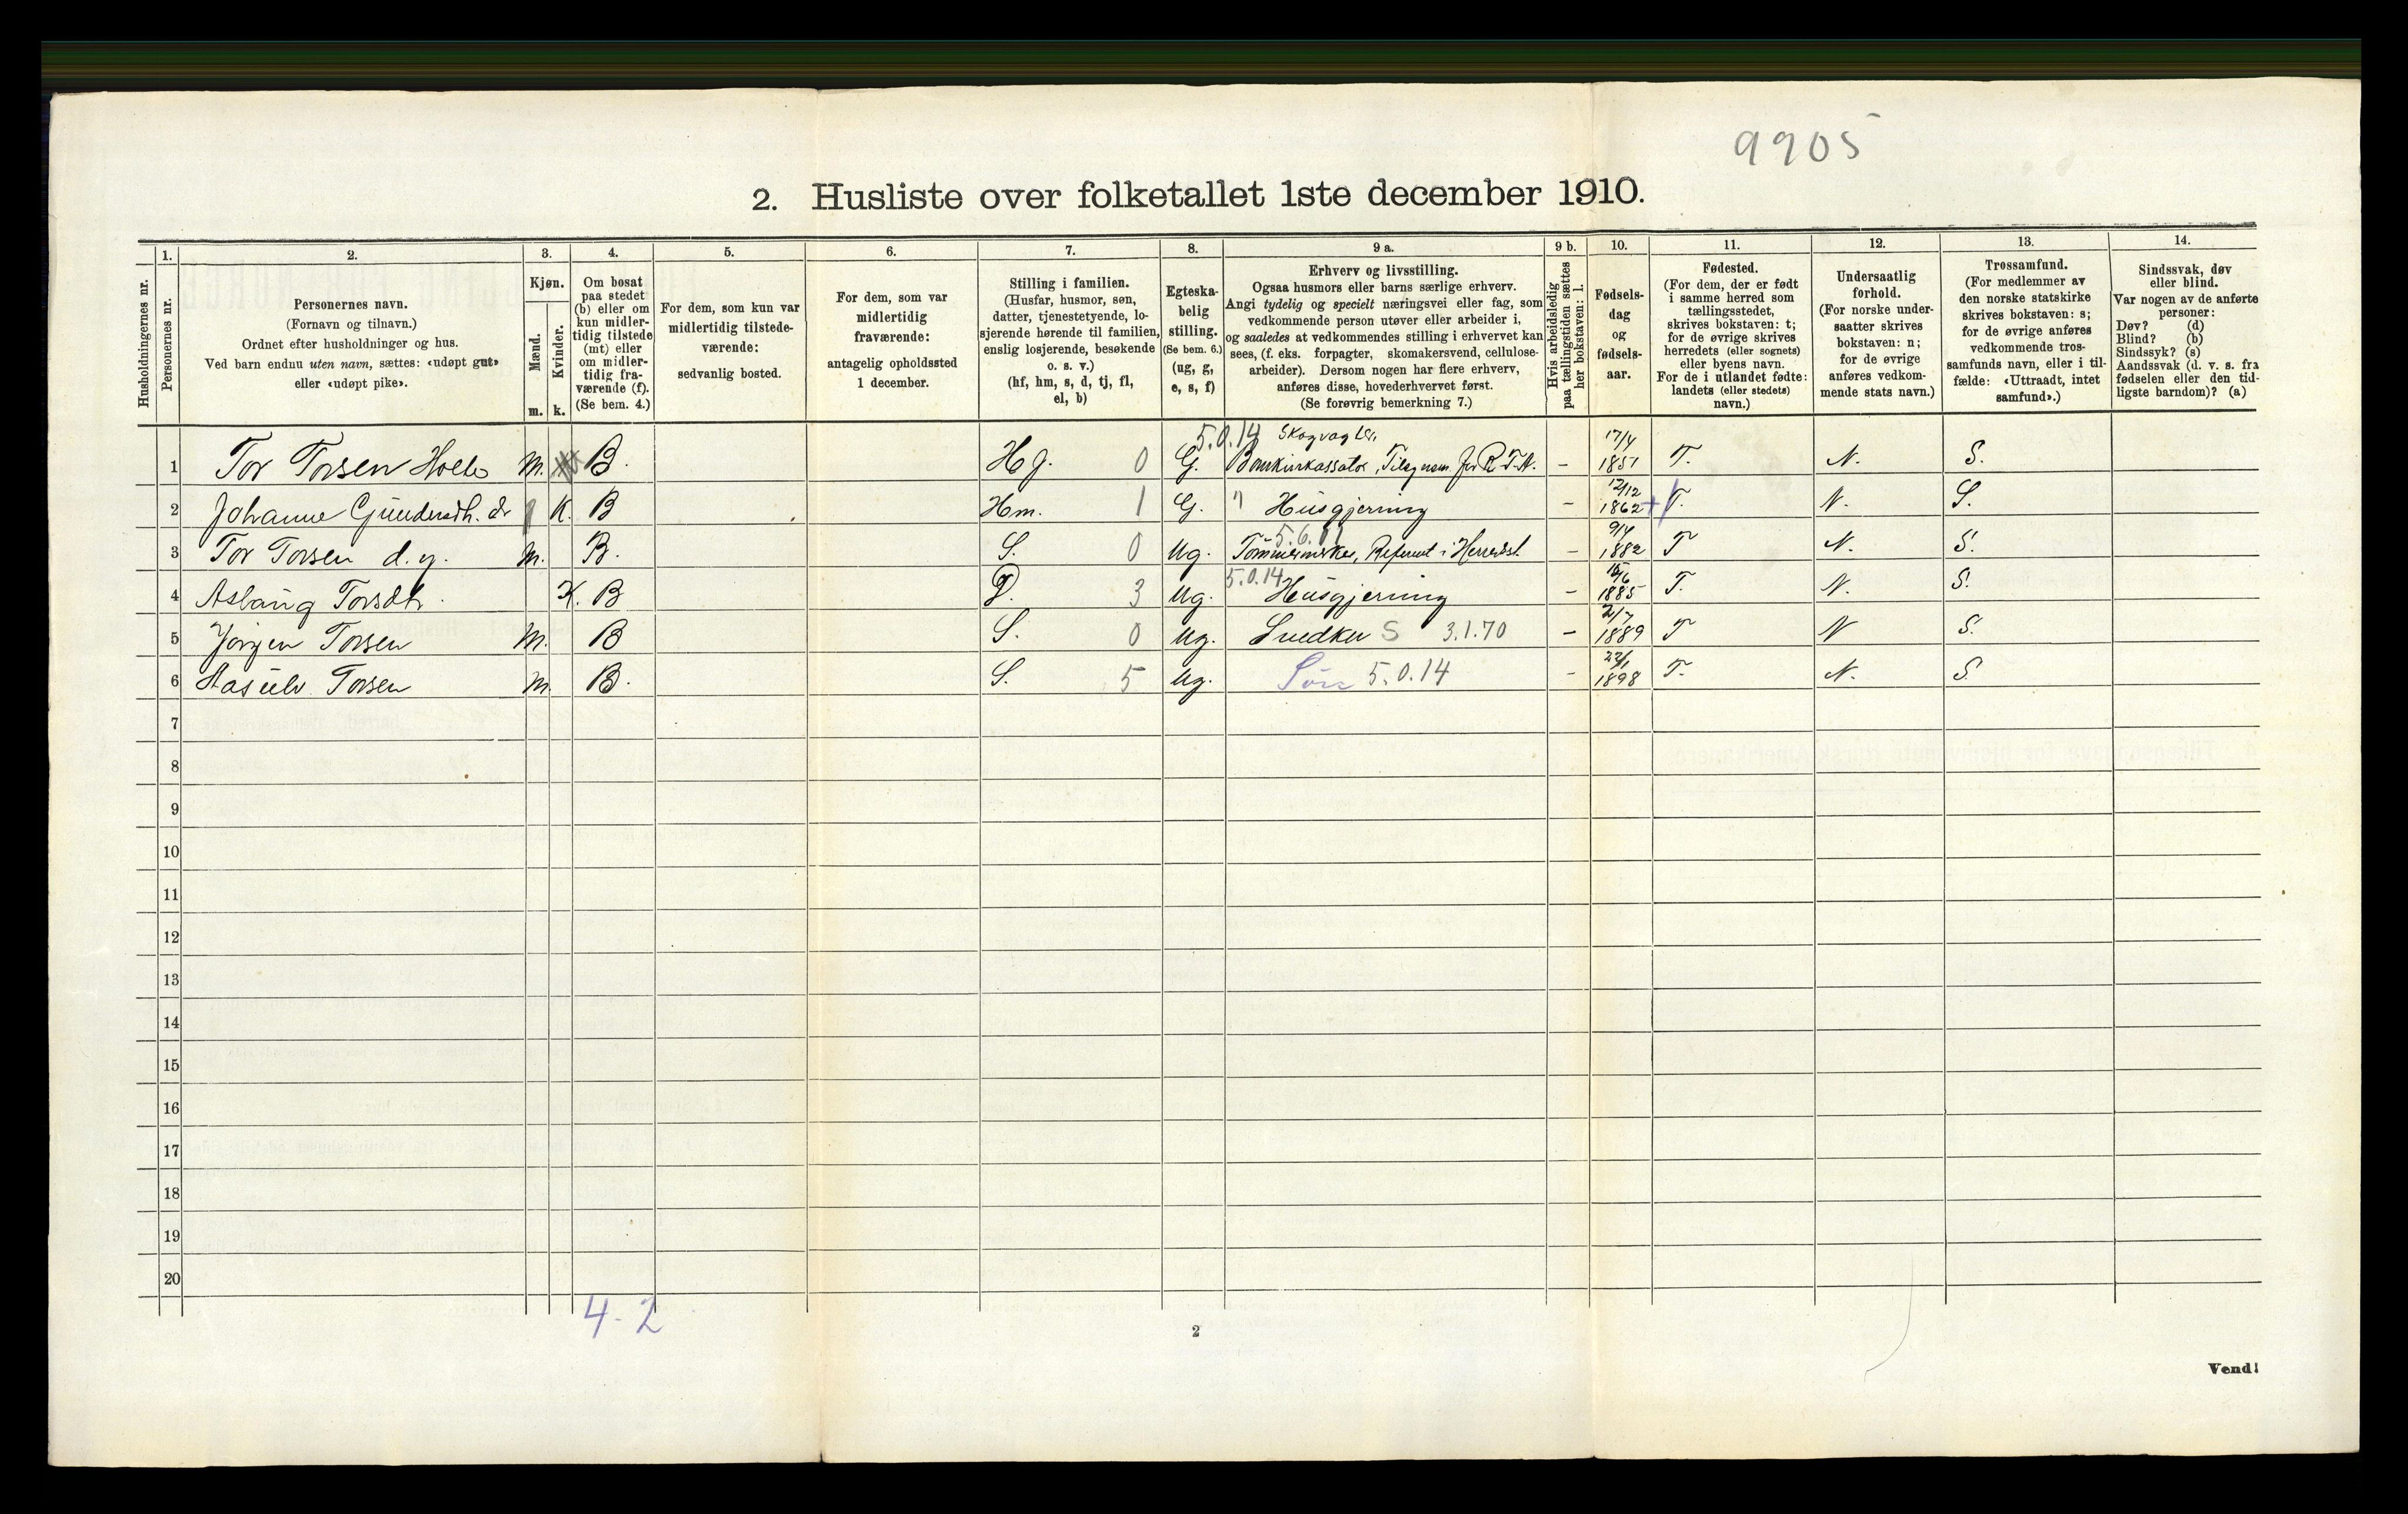 9905
2. Husliste over folketallet 1ste december 1910.
Husholdningernes nr.
1. Personernes nr.
2. Personernes navn. (Fornavn og tilnavn.) Ordnet efter husholdninger og hus. Ved barn endnu uten navn, sættes: «udøpt gut» eller «udøpt pike».
3. Kjøn. Mænd. m. Kvinder. k.
4. Om bosat paa stedet (b) eller om kun midlertidig tilstede (mt) eller om midlertidig fraværende (f). (Se bem. 4.)
5. For dem, som kun var midlertidig tilstedeværende: sedvanlig bosted.
6. For dem, som var midlertidig fraværende: antagelig opholdssted 1 december.
7. Stilling i familien. (Husfar, husmor, søn, datter, tjenestetyende, losjerende hørende til familien, enslig losjerende, besøkende o. s. v.) (hf, hm, s, d, tj, fl, el, b)
8. Egteskabelig stilling. (Se bem. 6.) (ug, g, e, s, f)
9 a. Erhverv og livsstilling. Ogsaa husmors eller barns særlige erhverv. Angi tydelig og specielt næringsvei eller fag, som vedkommende person utøver eller arbeider i, og saaledes at vedkommendes stilling i erhvervet kan sees, (f. eks. forpagter, skomakersvend, cellulosearbeider). Dersom nogen har flere erhverv, anføres disse, hovederhvervet først. (Se forøvrig bemerkning 7.)
9 b. Hvis arbeidsledig paa tællingstiden sættes her bokstaven: l.
10. Fødselsdag og fødselsaar.
11. Fødested. (For dem, der er født i samme herred som tællingsstedet, skrives bokstaven: t; for de øvrige skrives herredets (eller sognets) eller byens navn. For de i utlandet fødte: landets (eller stedets) navn.)
12. Undersaatlig forhold. (For norske undersaatter skrives bokstaven: n; for de øvrige anføres vedkommende stats navn.)
13. Trossamfund. (For medlemmer av den norske statskirke skrives bokstaven: s; for de øvrige anføres vedkommende trossamfunds navn, eller i tilfælde: «Uttraadt, intet samfund».)
14. Sindssvak, døv eller blind. Var nogen av de anførte personer: Døv? (d) Blind? (b) Sindssyk? (s) Aandssvak (d. v. s. fra fødselen eller den tidligste barndom)? (a)
5.0.14 Skogvagter,
1 Tor Torsen Holte M. B. Hf. 0 G. Bankinkassator, - 17/4 1851 T. N. S.
2 Johanne K. B Hm. 1 G. " Husgjerning - 12/12 1862 T. N. S.
3 Tor Torsen d. y. M. B. S. 0 Ug. 5.6. i Herredst. - 9/4 1882 T N. S.
4 Aslaug Torsdtr. K. B D. 3 Ug. 5.0.14 Husgjerning - 15/6 1885 T. N. S.
5 Jørgen Torsen M. B S. 0 Ug. Snedker S 3.1.70 - 2/7 1889 T N S.
6 Torsen M. B. S. 5 Ug. 5.0.14 - 22/1 1898 T. N. S
7
8
9
10
11
12
13
14
15
16
17
18
19
20
4-2
2
Vend!